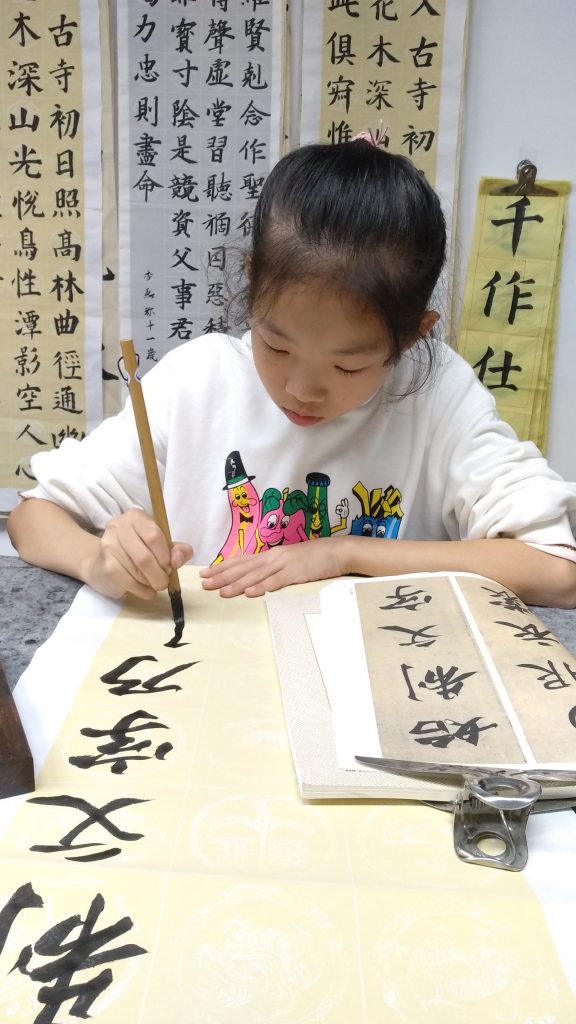 千作仕
古寺初
花木深
俱寂惟
賢剋念作聖
聲虛堂習聽禍因惡積
寶寸陰是競資父事君
力忠則盡命
十一歲
古寺初日照高林曲徑通幽
木深山光悅鳥性潭影空人心
始制文字
服衣裳
制文字乃